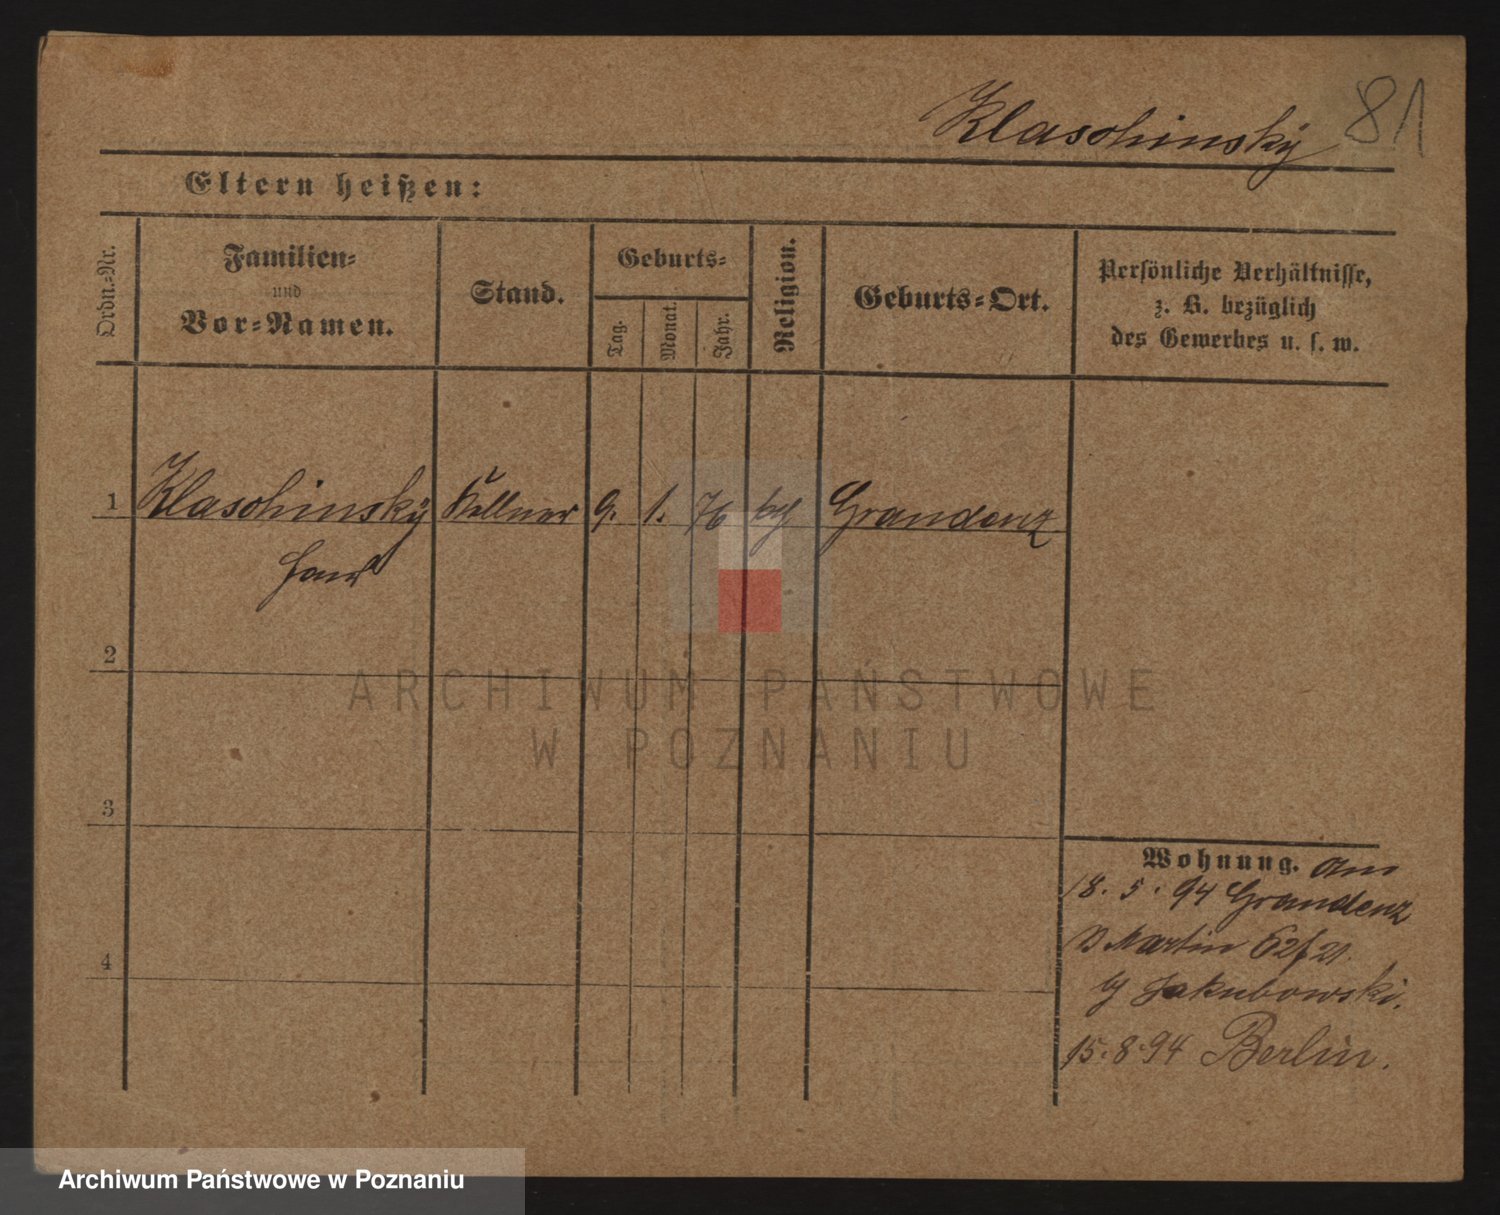 Klaschinsky 81
Eltern heißen:
Ordn.-Nr.
Familien-
und
Vor-Namen.
Stand.
Geburts-
Tag.
Monat.
Jahr.
Religion.
Geburts-Ort.
Persönliche Verhältnisse,
z. B. bezüglich
des Gewerbes u. s. w.
1 Klaschinsky Kellner 9. 1. 76 Graudenz
2
3
4
Wohnung. am
18. 5. 94 Graudenz
Martin 62/21.
b/ Jakubowski.
15.8.94 Berlin.
ARCHIWUM PAŃSTWOWE
W POZNANIU
Archiwum Państwowe w Poznaniu